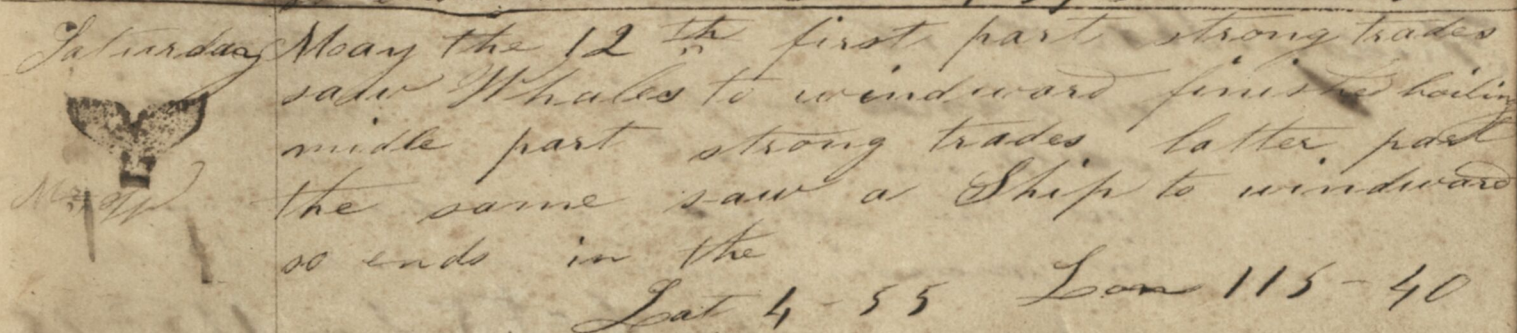 Saturday Moay the 12th first part strong trades
saw Whales to windward finished boiling
midle part strong trades latter part
the same saw a Ship to windward
so ends in the
Lat 4-55 Lon 115-40